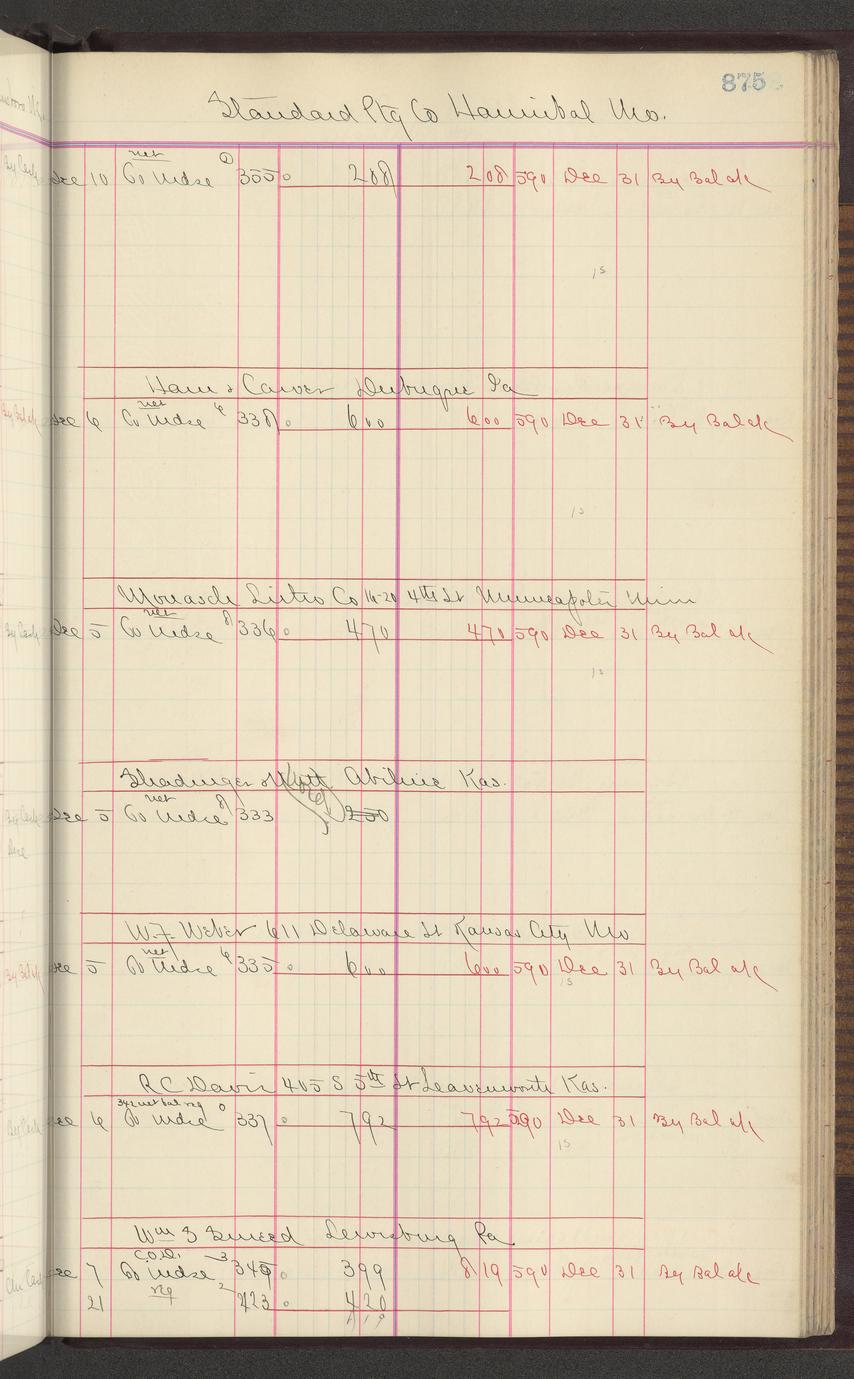 875
Standard Ptg Co Hannibal Mo.
net
Dec 10 Co Mdse 1 355 208 208 590 Dec 31 By Bal a/c
15
Ham & Carver Dubuque Ia
net
Dec 6 Co Mdse 6 338 600 600 590 Dec 31 By Bal a/c
15
Monasch Litho Co 16-20 4th St Minneapolis Minn
net
Dec 5 Co Mdse 8 336 470 470 590 Dec 31 By Bal a/c
15
Shadinger & Abilene Kas.
net
Dec 5 Co Mdse 8 333 250
W.F. Weber 611 Delaware St Kansas City Mo
net
Dec 5 Co Mdse 6 335 600 600 590 Dec 31 By Bal a/c
15
RC Davis 405 S 5th St Leavenworth Kas.
net bal rg
Dec 6 Co Mdse 0 337 792 792 590 Dec 31 By Bal a/c
15
Wm S Lewisburg Pa
C.O.D.
Dec 7 Co Mdse 3 345 399 819 590 Dec 31 By Bal a/c
21 rg 2 423 420
819